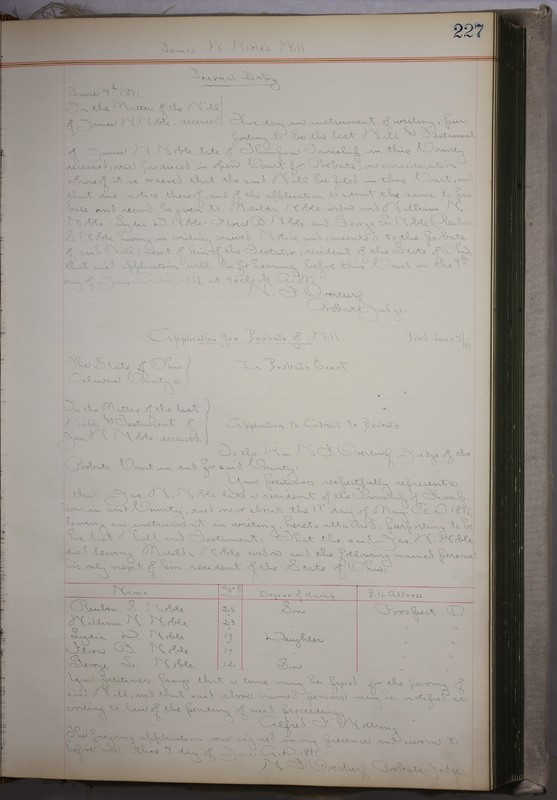 227
James N. Noble's Will
Journal Entry
June 4th 1891
In the Matter of the Will
of James N. Noble, deceased
This day an instrument of writing, pur-
porting to be the last Will & Testament
of James N. Noble, late of Thompson Township in this County
deceased, was produced in open Court for Probate; on consideration
whereof it is ordered that the said Will be filed in this Court, and
that due notice thereof, and of the application to admit the same to Pro-
bate and record be given to Matilda Noble widow and William N.
Noble Lydia D. Noble Flora B. Noble and George L. Noble (Reuben
S Noble having in writing waived Notice and consented to the Probate
of said Will) next of kin of the Testator, resident of the State of Ohio,
that said application will be for hearing before this Court on the 9th
day of June A.D. 1891, at 9 o'clock A.M.
N. F. Overturf
Probate Judge
Application for Probate of Will
Filed June 4/91
The State of Ohio
Delaware County ss
In Probate Court
In the Matter of the last
Will & Testament of
Jas. N. Noble, deceased
Application to Admit to Probate
To the Hon N. F. Overturf, Judge of the
Probate Court in and for said County:
Your petitioner respectfully represents
that Jas. N. Noble late a resident of the Township of Thomp-
son in said County, died on or about the day of May A.D. 1891
leaving an instrument in writing, hereto attached, purporting to be
his last Will and Testament; That the said Jas. N. Noble
died leaving Matilda Noble widow and the following named persons
his only next of kin resident of the State of Ohio;
Name Aged Degree of Kinship P.O. Address
Reuben S. Noble 25 Son Prospect O
William N. Noble 23 " "
Lydia D Noble 19 Daughter "
Flora B. Noble 14 " "
George L. Noble 12 Son "
Your petitioner prays that a time may be fixed for the proving of
said Will, and that said above named persons may be notified ac-
cording to law of the pending of said proceeding.
Alfred F.
The foregoing application was signed in my presence and sworn to
before me this 4 day of June A.D. 1891
N. F. Overturf, Probate Judge